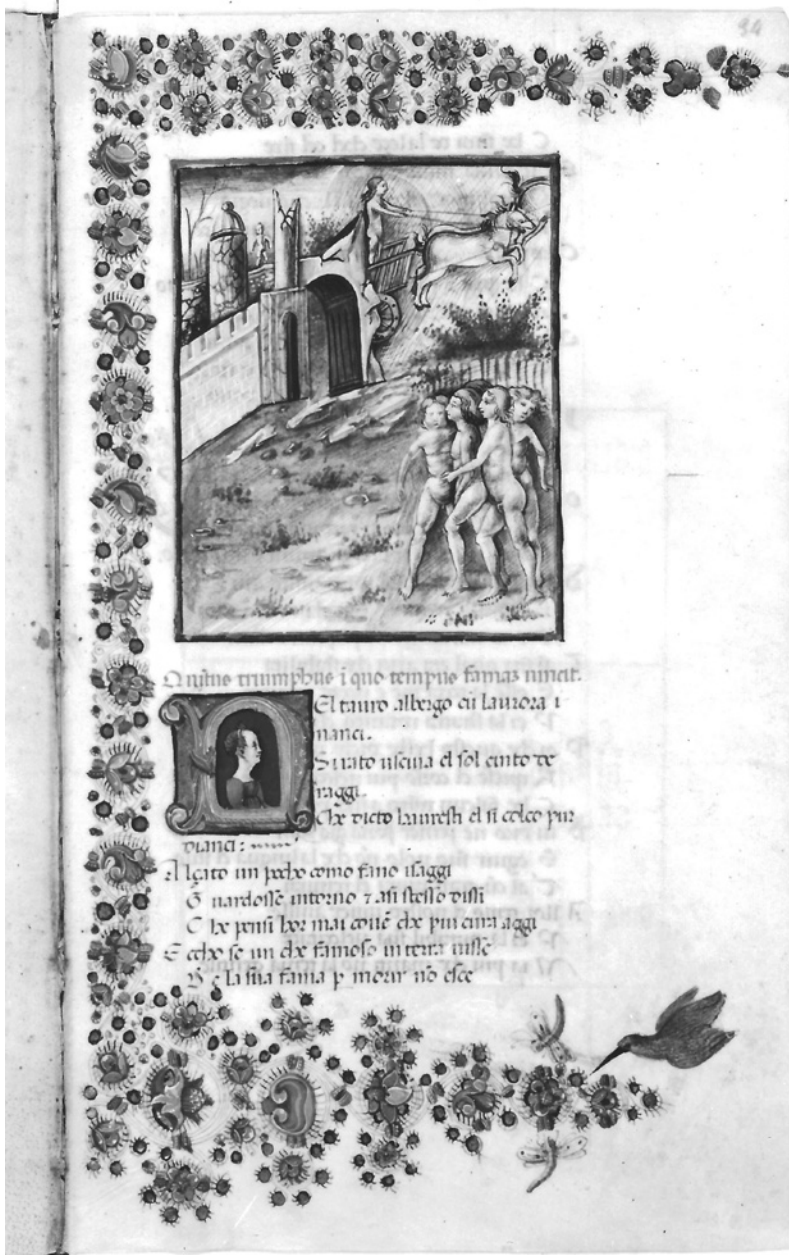 34
Quintus triumphus i quo tempus famaz uincit.
El tauro albergo cũ laurora i
nanci.
S irato usciua el sol cinto de
raggi.
Che dicto lauresti el si colco pur
dianci:
A lçato un pocho como fano isaggi
G uardosse intorno ⁊ asi stesso dissi
C he pensi hor mai conuẽ che piu cura aggi
E ccho se un che famoso in terra uisse
D e la sua fama p morir nõ esce